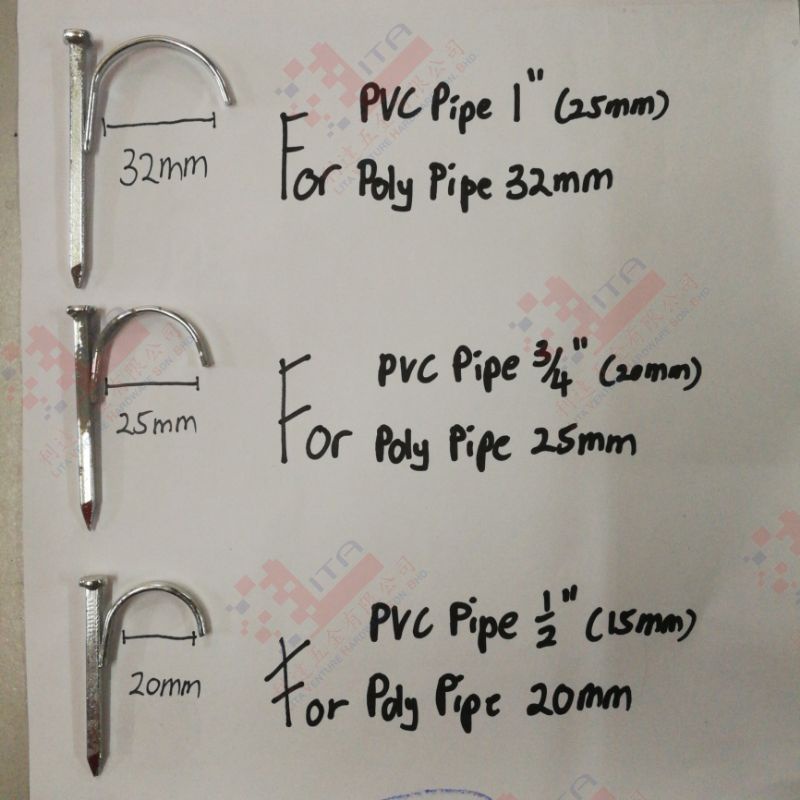 32mm
PVC Pipe 1" (25mm)
For Poly Pipe 32mm
25mm
PVC Pipe 3/4" (20mm)
For Poly Pipe 25mm
20mm
PVC Pipe 1/2" (15mm)
For Poly Pipe 20mm
ITA
利達五金有限公司
LITA VENTURE HARDWARE SDN. BHD.